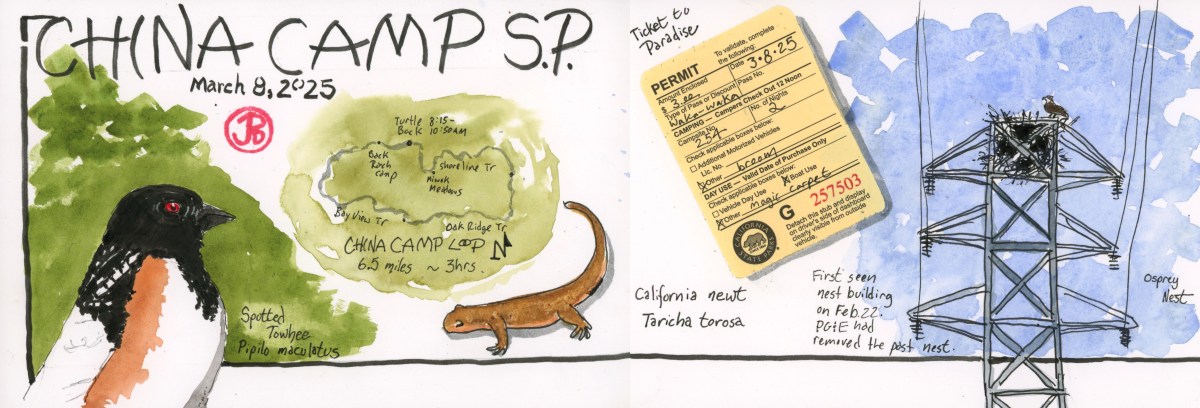 CHINA CAMP S.P.
March 8, 2025
JPD
Turtle
Back
8:15-
10:50AM
Back
Rush
camp
Shoreline Tr
Miwok
Meadows
Bay View Tr
Oak Ridge Tr
CHINA CAMP LOOP
N
6.5 miles ~ 3hrs.
Spotted
Towhee
Pipilo maculatus
Ticket to
Paradise
PERMIT
To validate, complete
the following:
Amount Enclosed
$ 3.00
Date 3.8.25
Type of Pass or Discount
Waka-Waka
Pass No.
CAMPING — Campers Check Out 12 Noon
Campsite No.
254
No. of Nights
2
Check applicable boxes below:
Additional Motorized Vehicles
Lic. No.
Other broom
DAY USE — Valid Date of Purchase Only
Check applicable boxes below:
Vehicle Day Use
Boat Use
Other magic carpet
G 257503
CALIFORNIA
STATE PARKS
Detach this stub and display
on driver's side of dashboard
clearly visible from outside
vehicle.
California newt
Taricha torosa
First seen
nest building
on Feb. 22.
PG&E had
removed the past nest.
Osprey
Nest